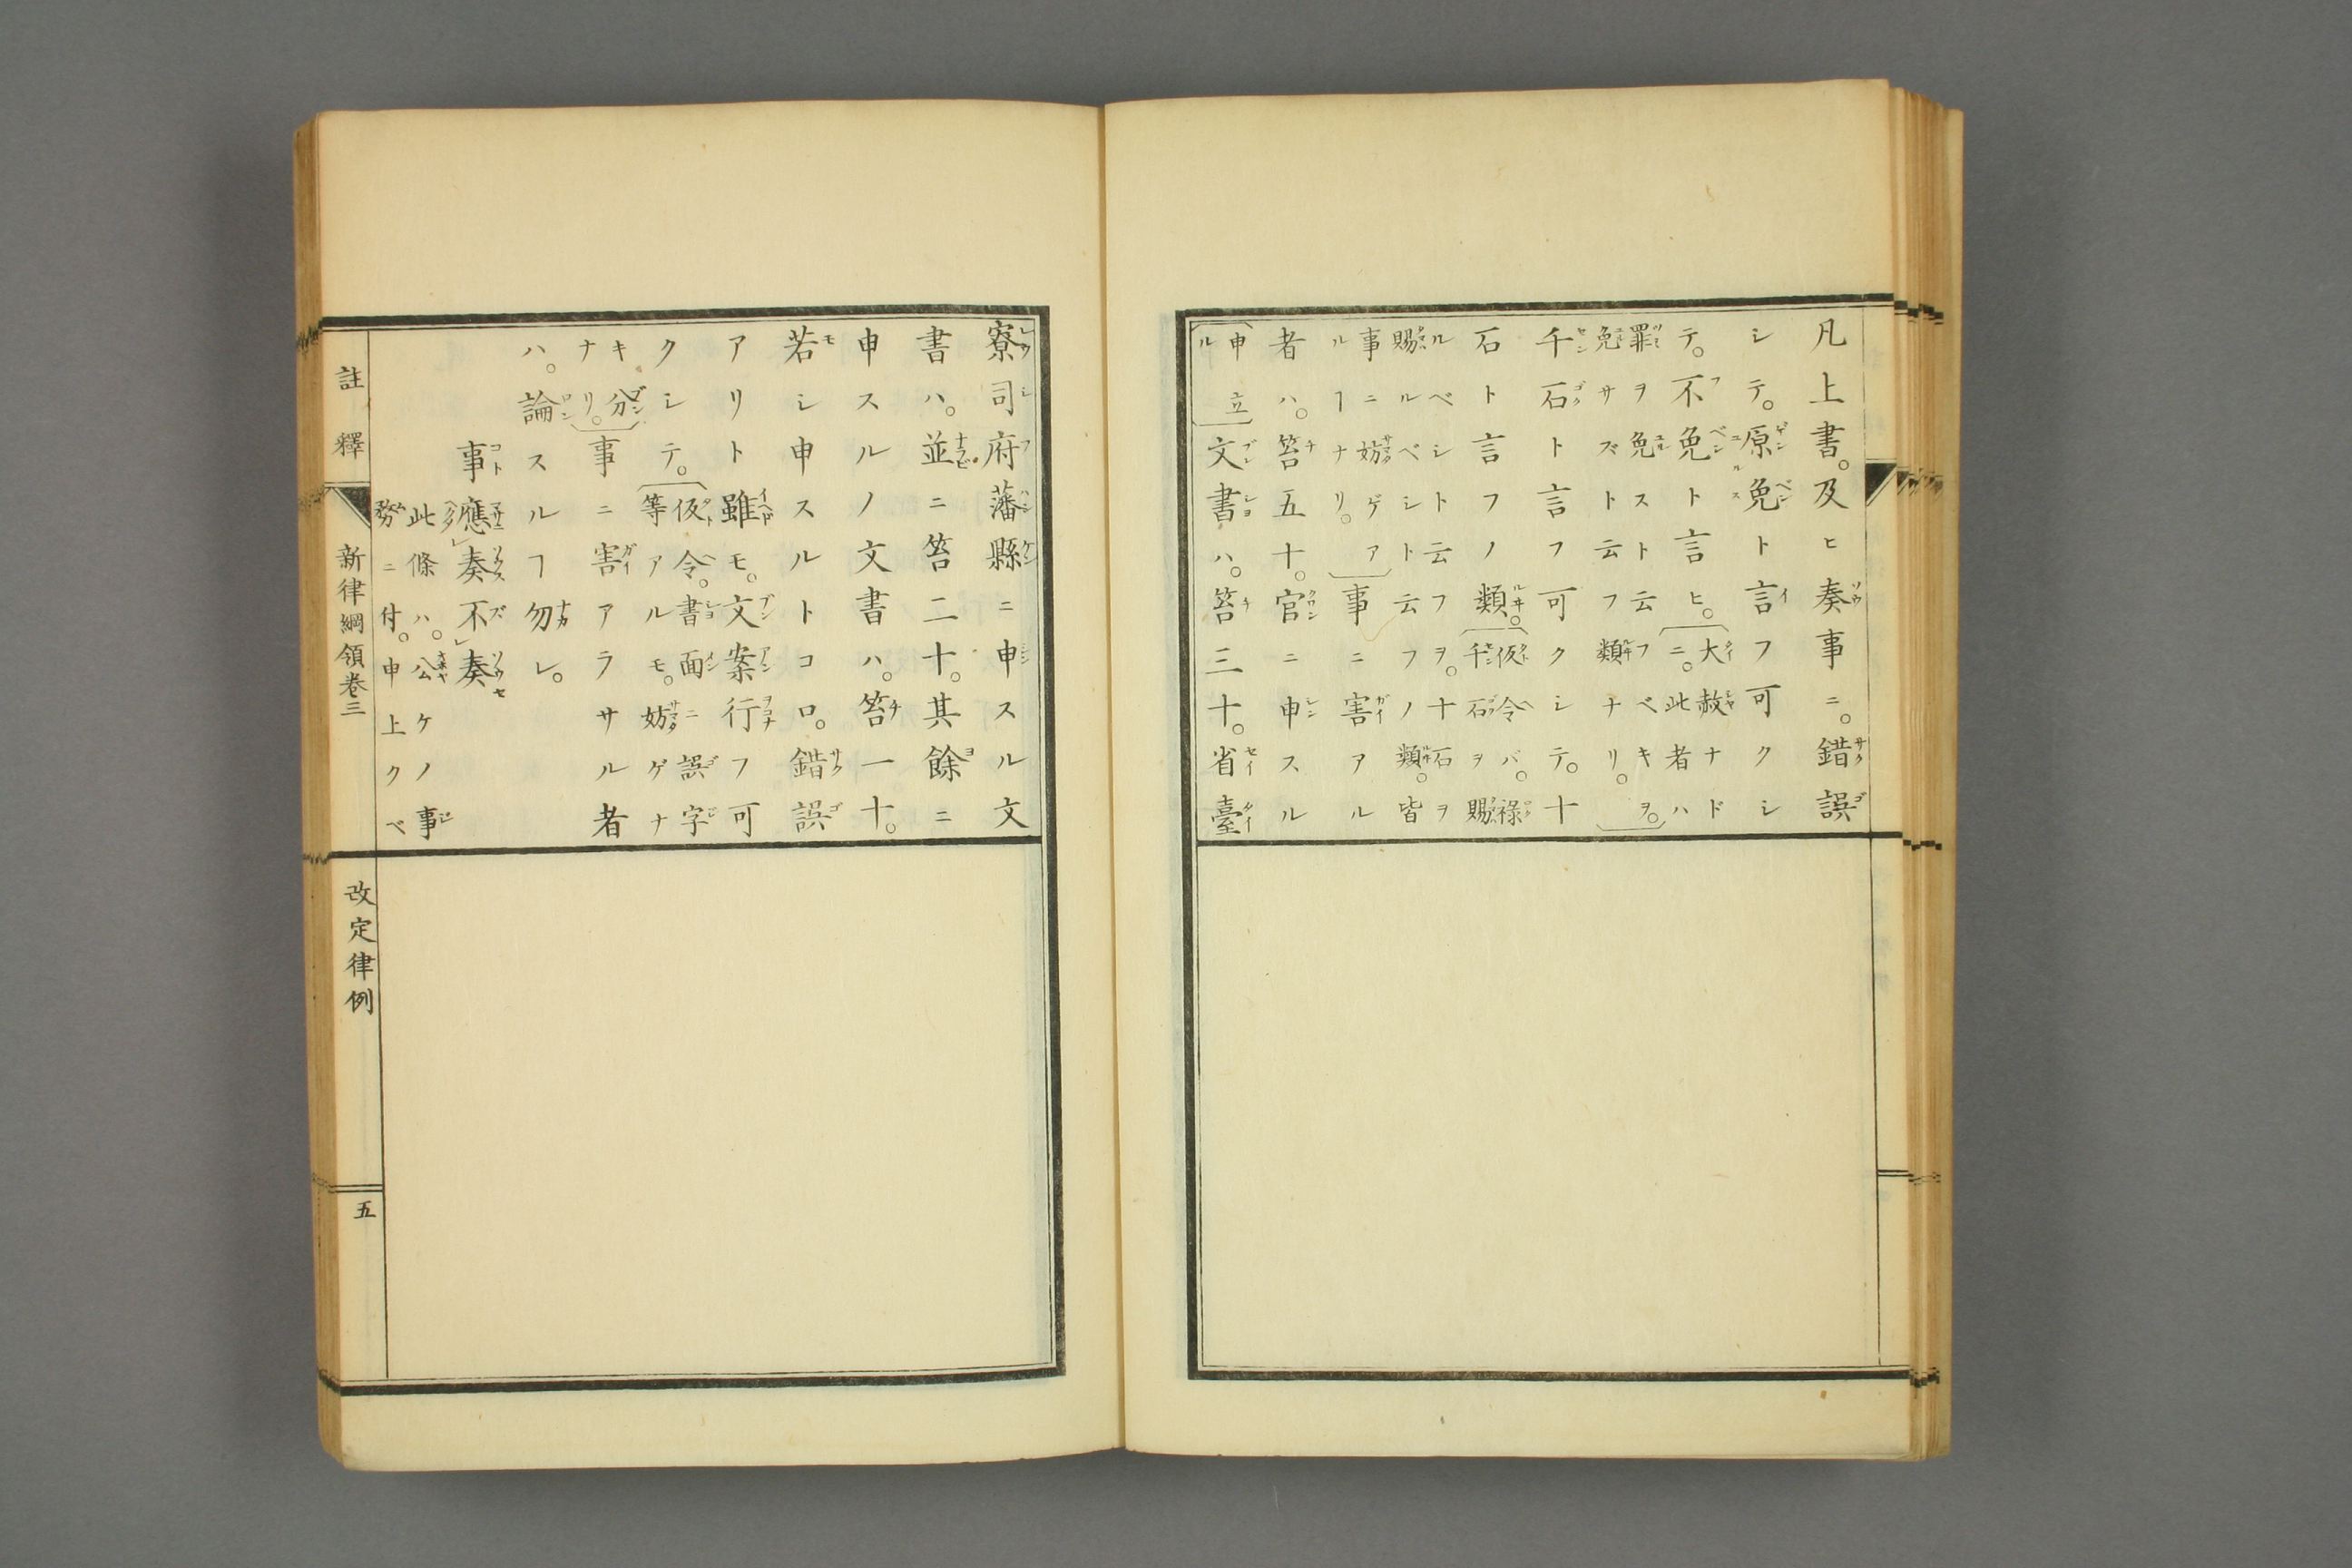 凡上書。及ヒ奏事ニ。錯誤
シテ。原免ト言フ可クシ
テ。不免ト言ヒ。大赦ナド
ニ。此者ハ
罪ヲ免スト云フベキヲ。
免サズト云フ類ナリ。
千石ト言フ可クシテ。十
石ト言フノ類。仮令バ。禄
千石ヲ賜
ルベシト云フヲ。十石ヲ
賜ルベシト云フノ類。皆
事ニ妨ゲア
ルヿナリ。事ニ害アル
者ハ。笞五十。官ニ申スル
申立
ル文書ハ。笞三十。省臺
寮司府藩縣ニ申スル文
書ハ。並ニ笞二十。其餘ニ
申スルノ文書ハ。笞一十。
若シ申スルトコロ。錯誤
アリト雖モ。文案行フ可
クシテ。仮令。書面ニ誤字
等アルモ。妨ゲナ
キ分
ナリ。事ニ害アラサル者
ハ。論スルヿ勿レ。
事應奏不奏
此條ハ。公ケノ事
務ニ付。申上クベ
註釋
新律綱領卷三
改定律例
五